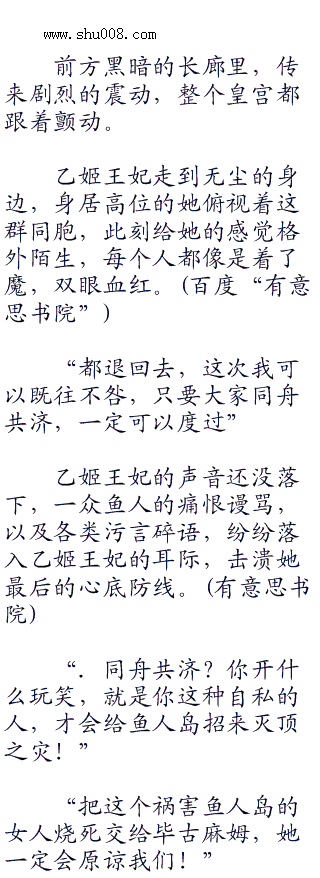 www.shu008.com
前方黑暗的长廊里，传
来剧烈的震动，整个皇宫都
跟着颤动。
乙姬王妃走到无尘的身
边，身居高位的她俯视着这
群同胞，此刻给她的感觉格
外陌生，每个人都像是着了
魔，双眼血红。(百度“有意
思书院”)
“都退回去，这次我可
以既往不咎，只要大家同舟
共济，一定可以度过”
乙姬王妃的声音还没落
下，一众鱼人的痛恨谩骂，
以及各类污言碎语，纷纷落
入乙姬王妃的耳际，击溃她
最后的心底防线。(有意思书
院)
“．同舟共济？你开什
么玩笑，就是你这种自私的
人，才会给鱼人岛招来灭顶
之灾！”
“把这个祸害鱼人岛的
女人烧死交给毕古麻姆，她
一定会原谅我们！”